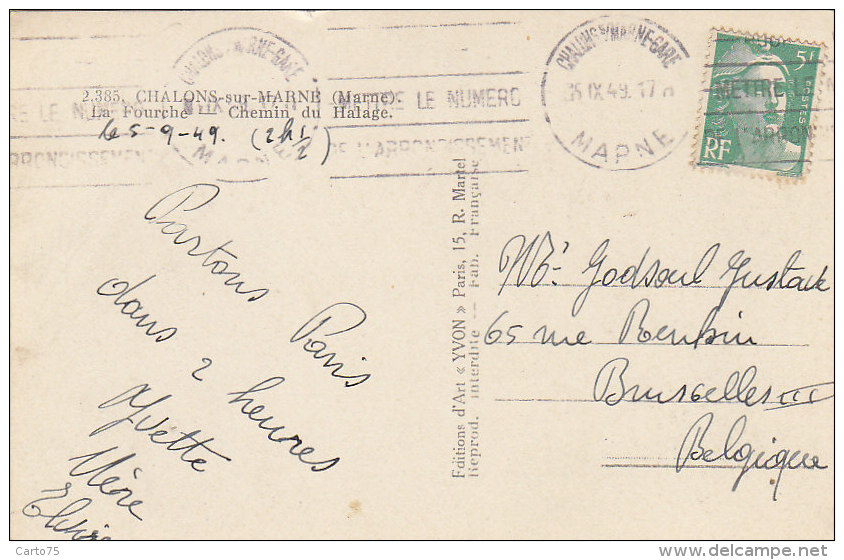 2.385. CHALONS-sur-MARNE (Marne).
La Fourche - Chemin du Halage.
le 5-9-49. (2h1/2)
Partons Paris
dans 2 heures
Yvette
Mère
CHALONS S/MARNE-GARE
05 IX 49. 17
MARNE
METTRE LE NUMERO
DE L'ARRONDISSEMENT
5F
POSTES
RF
Editions d'Art « YVON » Paris, 15, R. Martel
Reprod. interdite -- Fab. Française
Mr Godsoul Gustave
65 rue
Bruxelles III
Belgique
Carto75
www.delcampe.net